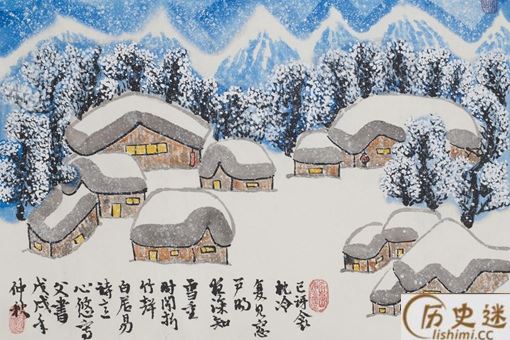 已讶衾
枕冷
复见窗
户明
夜深知
雪重
时闻折
竹声
白居易
诗意
心悠写
書
戊戌年
仲秋
历史迷
lishimi.cc